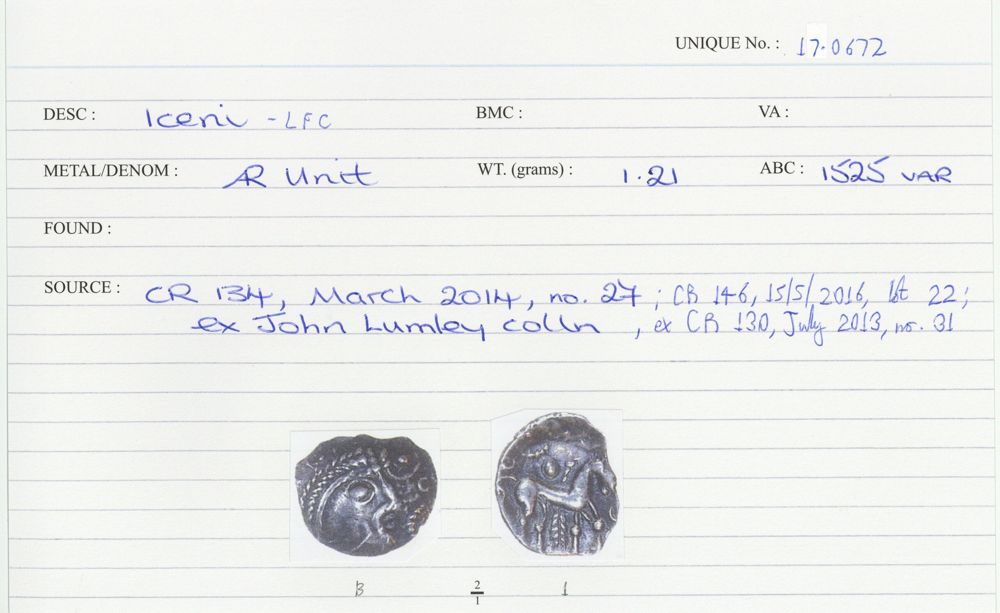 UNIQUE No. : 17.0672
DESC : Iceni - LFC BMC : VA :
METAL/DENOM : AR Unit WT. (grams) : 1.21 ABC : 1525 VAR
FOUND :
SOURCE : CR 134, March 2014, no. 27 ; CR 146, 15/5/2016, lot 22 ;
ex John Lumley colln , ex CR 130, July 2013, no. 31
B 2/1 1